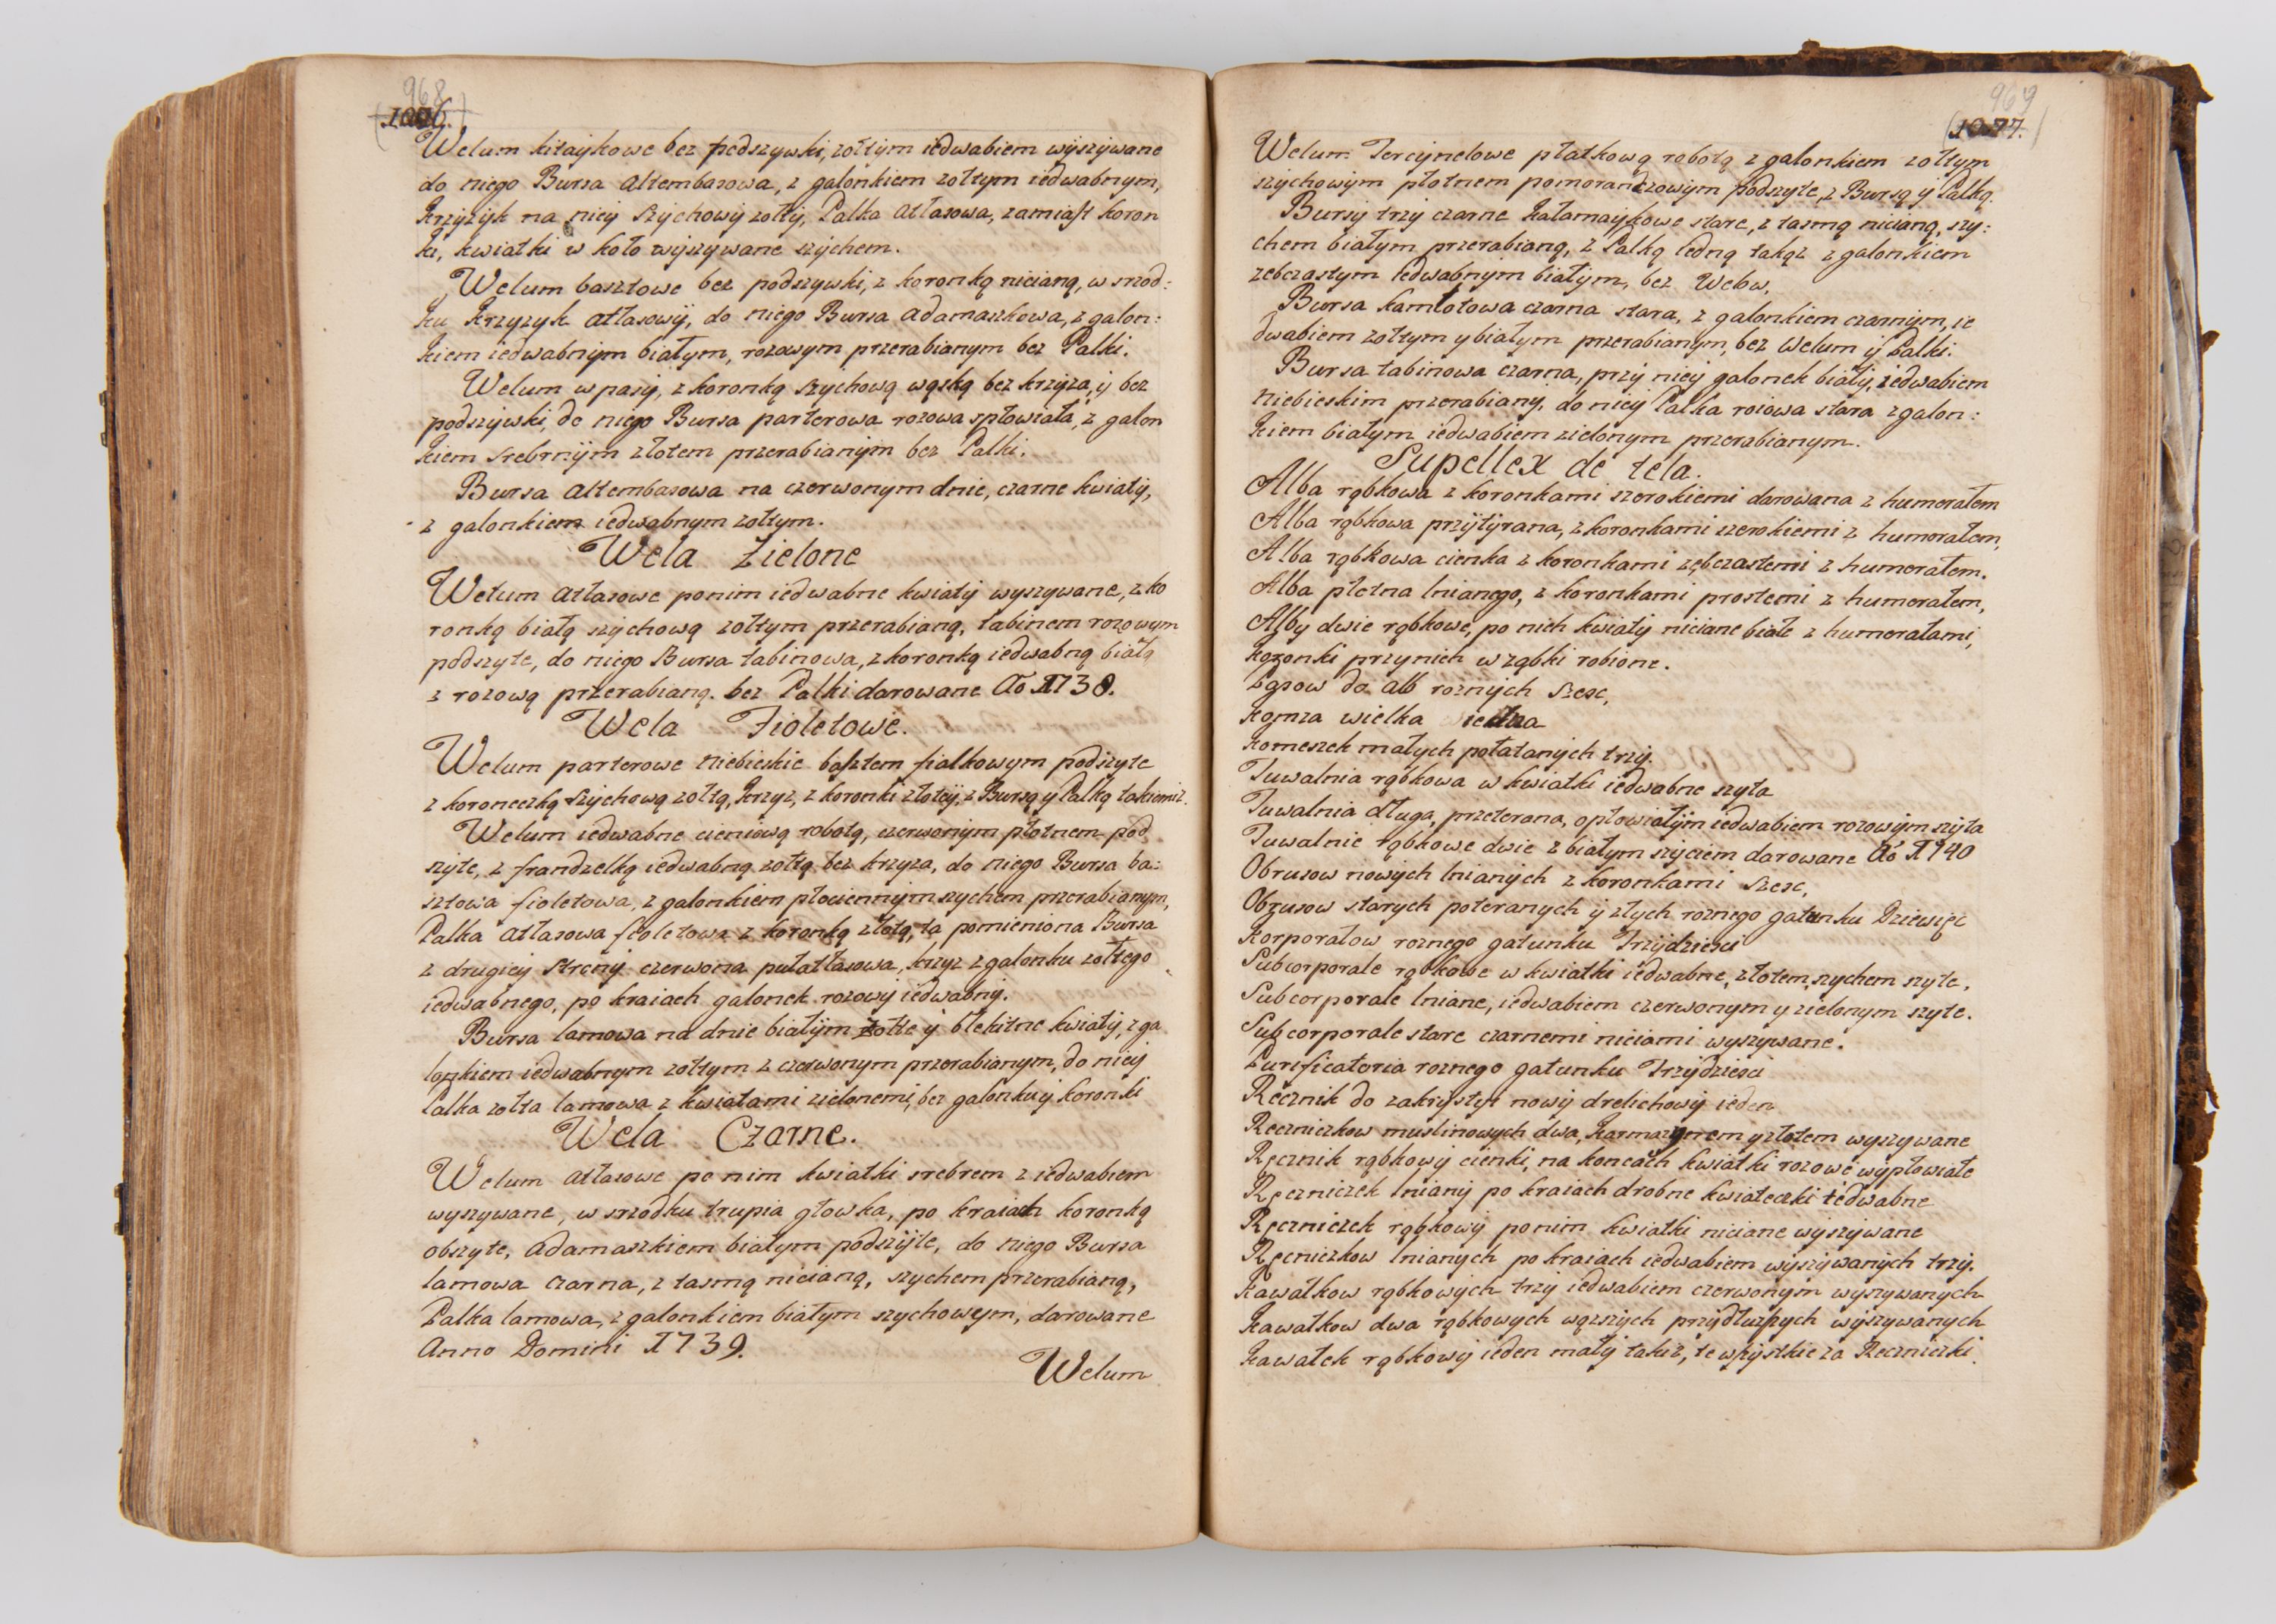 968
1076.
Welum kitaykowe bez podszywki, zołtym iedwabiem wyszywane
do niego Bursa altembasowa, z galonkiem zołtym iedwabnym,
krzyzyk na niey szychowy zołty, Palka atłasowa, zamiast koron
ki, kwiatki w koło wyszywane szychem.
Welum basztowe bez podszywki, z koronką nicianą, w srzod:
ku krzyzyk atłasowy, do niego Bursa adamaszkowa, z galon:
kiem iedwabnym białym, rozowym przerabianym bez Palki.
Welum w pasy, z koronką szychową wąską bez krzyza, y bez
podszywki, do niego Bursa parterowa rozowa spłowiała, z galon
kiem srebrnym złotem przerabianym bez Palki.
Bursa altembasowa na czerwonym dnie, czarne kwiaty,
z galonkiem iedwabnym zołtym.
Wela Zielone
Welum atłasowe ponim iedwabne kwiaty wyszywane, z ko
ronką białą szychową zołtym przerabianą, tabinem rozowym
podszyte, do niego Bursa tabinowa, z koronką iedwabną białą
z rozową przerabianą. bez Palki darowane Ao 1738.
Wela Fioletowe.
Welum parterowe niebieskie basztem fialkowym podszyte
z koroneczką szychową zołtą, krzyz, z koronki złotey, z Bursą y Palką takiemiz.
Welum iedwabne cieniową robotą, czerwonym płotnem pod
szyte, z frandzelką iedwabną zołtą bez krzyza, do niego Bursa ba:
sztowa fioletowa, z galonkiem płociennym szychem przerabianym,
Palka atłasowa fioletowa z koronką złotą, ta pomieniona Bursa
z drugiey strony czerwona pułatłasowa, krzyz z galonku zołtego
iedwabnego, po kraiach galonek rozowy iedwabny.
Bursa lamowa na dnie białym zołte y błekitne kwiaty, z ga
lonkiem iedwabnym zołtym z czerwonym przerabianym, do niey
Palka zołta lamowa z kwiatami zielonemi, bez galonku y koronki
Wela Czarne.
Welum atłasowe po nim kwiatki srebrem z iedwabiem
wyszywane, w srzodku trupia głowka, po kraiach koronką
obszyte, adamaszkiem białym podszyte, do niego Bursa
lamowa czarna, z tasmą nicianą, szychem przerabianą,
Palka lamowa, z galonkiem białym szychowym, darowane
Anno Domini 1739.
Welum
969
1077.
Welum Tercynelowe płatkową robotą z galonkiem zołtym
szychowym płotnem pomoranczowym podszyte, z Bursą y Palką.
Bursy trzy czarne kałamaykowe stare, z tasmą nicianą, szy:
chem białym przerabianą, z Palką Iedną takąz z galonkiem
zebczastym iedwabnym białym, bez Welow.
Bursa kamlotowa czarna stara, z galonkiem czarnym, ie
dwabiem zołtym y białym przerabianym, bez Welum y Palki.
Bursa tabinowa czarna, przy niey galonek biały, iedwabiem
niebieskim przerabiany, do niey Palka rozowa stara z galon:
kiem białym iedwabiem zielonym przerabianym.
Supellex de tela.
Alba rąbkowa z koronkami szerokiemi darowana z humerałem
Alba rąbkowa przytyrana, z koronkami szerokiemi z humerałem,
Alba rąbkowa cienka z koronkami ząbczastemi z humerałem.
Alba płotna lnianego, z koronkami prostemi z humerałem,
Alby dwie rąbkowe, po nich kwiaty niciane białe z humerałami,
koronki przynich w ząbki robione.
Pasow do alb roznych szesc,
komza wielka iedna
komeszek małych połatanych trzy.
Tuwalnia rąbkowa w kwiatki iedwabne szyta
Tuwalnia długa, przeterana, opłowiałym iedwabiem rozowym szyta
Tuwalnie rąbkowe dwie z białym szyciem darowane Ao 1740
Obrusow nowych lnianych z koronkami szesc,
Obrusow starych poteranych y złych roznego gatunku Dziewięc
korporałow roznego gatunku Trzydziesci
Subcorporale rąbkowe w kwiatki iedwabne, złotem, szychem szyte.
Subcorporale lniane, iedwabiem czerwonym y zielonym szyte.
Subcorporale stare czarnemi niciami wyszywane.
Purificatoria roznego gatunku Trzydziesci
Ręcznik do zakrystyi nowy drelichowy ieden
Ręczniczkow muslinowych dwa, karmazynem y złotem wyszywane
Ręcznik rąbkowy cienki, na koncach kwiatki rozowe wypłowiałe
Ręczniczek lniany po kraiach drobne kwiateczki iedwabne
Ręczniczek rąbkowy ponim kwiatki niciane wyszywane
Ręcniczkow lnianych po kraiach iedwabiem wyszywanych trzy.
kawałkow rąbkowych trzy iedwabiem czerwonym wyszywanych
kawałkow dwa rąbkowych węzszych przydłuzszych wyszywanych
kawałek rąbkowy ieden mały takiz, te wszystkie za Ręczniczki.